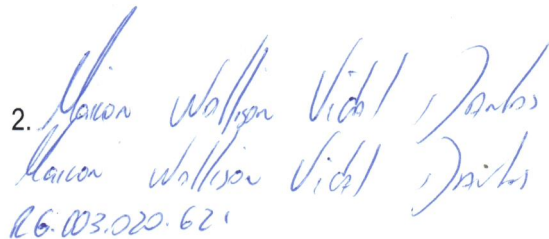 2. Maicon Wallison Vidal Dantas
Maicon Wallison Vidal Dantas
RG.003.020.621